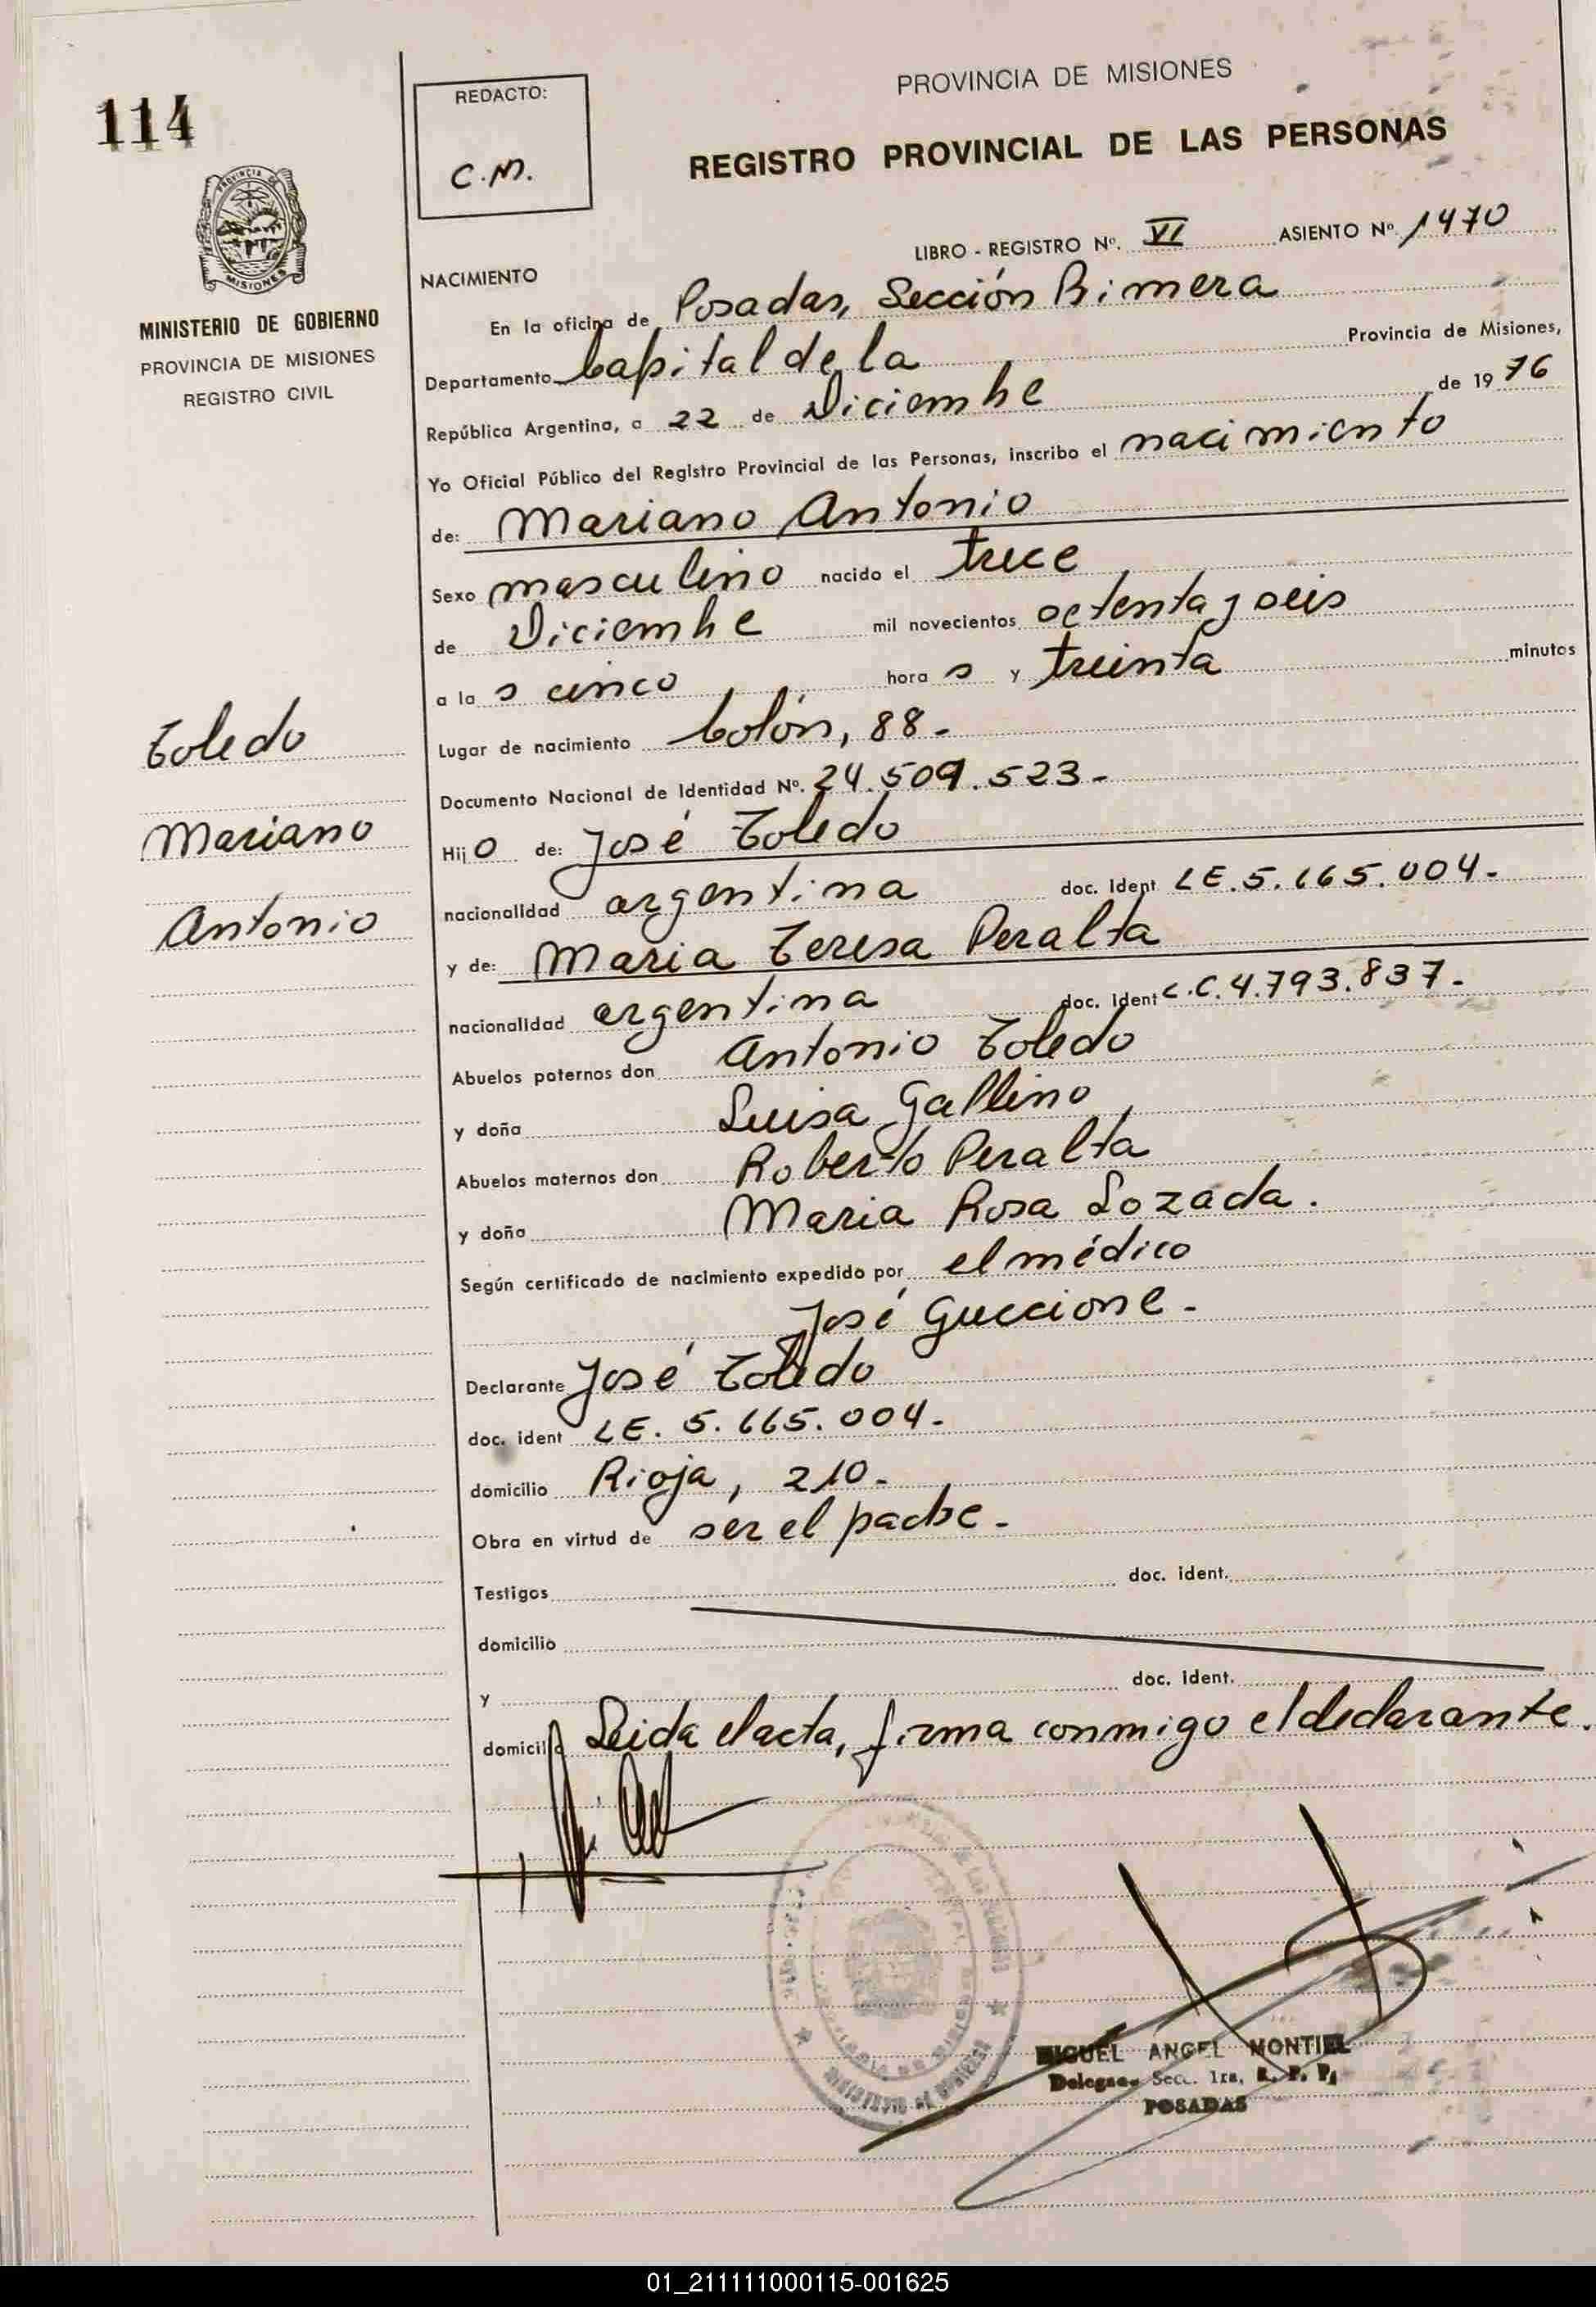 114
REDACTO:
C.M.
PROVINCIA DE MISIONES
REGISTRO PROVINCIAL DE LAS PERSONAS
PROVINCIA DE
MISIONES
MINISTERIO DE GOBIERNO
PROVINCIA DE MISIONES
REGISTRO CIVIL
LIBRO - REGISTRO Nº. VI ASIENTO Nº 1470
NACIMIENTO
En la oficina de Posadas, Sección Primera
Departamento Capital de la Provincia de Misiones,
República Argentina, a 22 de Diciembre de 1976
Yo Oficial Público del Registro Provincial de las Personas, inscribo el nacimiento
de: Mariano Antonio
Sexo masculino nacido el trece
de Diciembre mil novecientos setenta y seis
a las cinco horas y treinta minutos
Lugar de nacimiento Colón, 88.-
Documento Nacional de Identidad Nº. 24.509.523-
Hijo de: José Toledo
nacionalidad argentina doc. Ident LE.5.665.004.-
y de: Maria Teresa Peralta
nacionalidad argentina doc. Ident L.C.4.793.837.-
Abuelos paternos don Antonio Toledo
y doña Luisa Gallino
Abuelos maternos don Roberto Peralta
y doña Maria Rosa Lozada.
Según certificado de nacimiento expedido por el médico
José Guccione.-
Declarante José Toledo
doc. ident LE. 5.665.004.-
domicilio Rioja, 210.-
Obra en virtud de ser el padre.-
Testigos doc. ident.
domicilio
y doc. ident.
domicilio Leida el acta, firma conmigo el declarante.
Toledo
Mariano
Antonio
MINISTERIO DE GOBIERNO
MIGUEL ANGEL MONTIEL
Delegado Secc. 1ra, R. P. P.
POSADAS
01_211111000115-001625